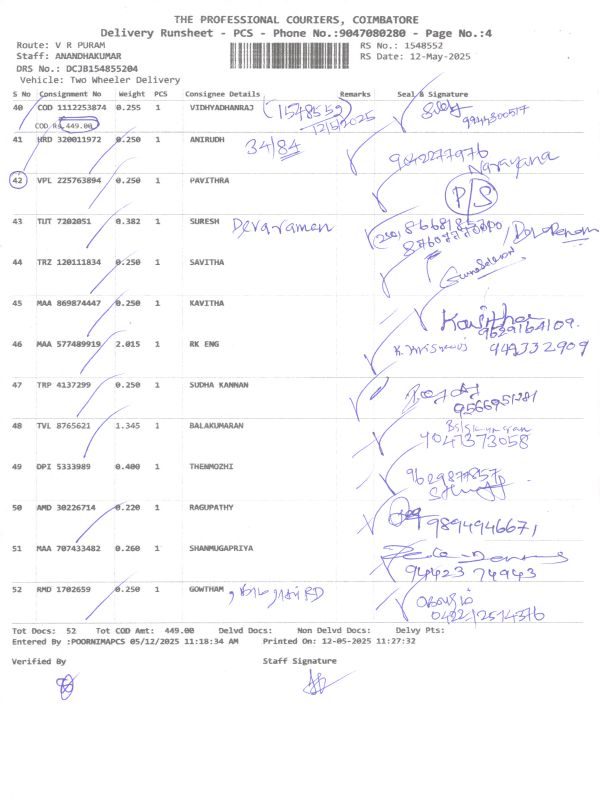 THE PROFESSIONAL COURIERS, COIMBATORE
Delivery Runsheet - PCS - Phone No.:9047080280 - Page No.:4
Route: V R PURAM RS No.: 1548552
Staff: ANANDHAKUMAR RS Date: 12-May-2025
DRS No.: DCJB154855204
Vehicle: Two Wheeler Delivery
S No Consignment No Weight PCS Consignee Details Remarks Seal & Signature
40 COD 1112253874 0.255 1 VIDHYADHANRAJ (1548552) 9944300517
COD Rs.449.00 12/5/2025
41 HRD 320011972 0.250 1 ANIRUDH 34/84 9042277976
Narayana
42 VPL 225763894 0.250 1 PAVITHRA P/S
43 TUT 7202051 0.382 1 SURESH Devaraman
44 TRZ 120111834 0.250 1 SAVITHA
45 MAA 869874447 0.250 1 KAVITHA Kavitha
9629164109.
46 MAA 577489919 2.015 1 RK ENG 949332909
47 TRP 4137299 0.250 1 SUDHA KANNAN
9566951281
48 TVL 8765621 1.345 1 BALAKUMARAN
7047373058
49 DPI 5333989 0.400 1 THENMOZHI 9629877857
50 AMD 30226714 0.220 1 RAGUPATHY 9894946671
51 MAA 707433482 0.260 1 SHANMUGAPRIYA
94423 74943
52 RMD 1702659 0.250 1 GOWTHAM
0422/2514376
Tot Docs: 52 Tot COD Amt: 449.00 Delvd Docs: Non Delvd Docs: Delvy Pts:
Entered By :POORNIMAPCS 05/12/2025 11:18:34 AM Printed On: 12-05-2025 11:27:32
Verified By Staff Signature